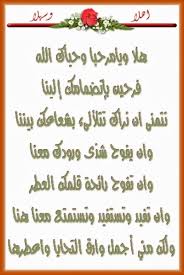 اهلا وسهلا
هلا ويامرحبا وحياك الله
فرحين بإنضمامك إلينا
نتمنى ان نراك تتلألىء بشعاعك بيننا
وان يفوح شذى ورودك معنا
وان تفوح رائحة قلمك العطر
وان تفيد وتستفيد وتستمتع معنا هنا
ولك مني أجمل وارق التحايا واعطرها